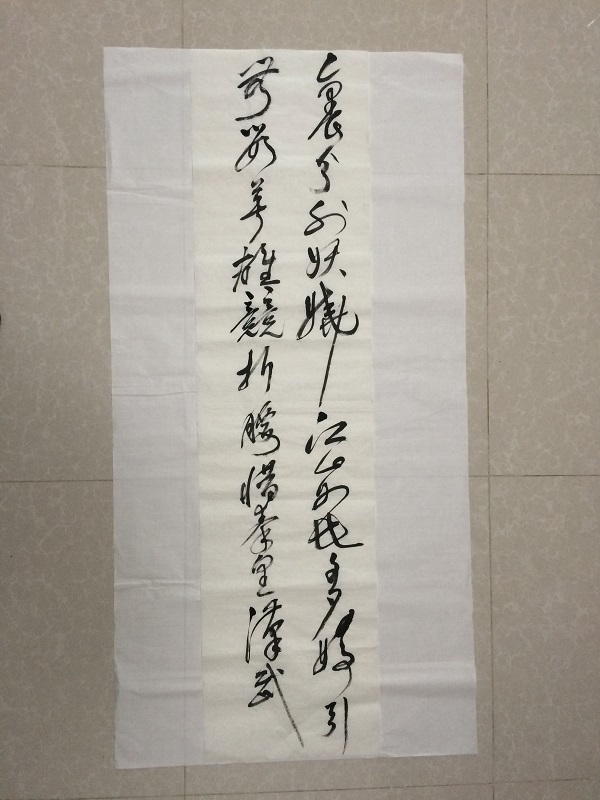 裹分外妖娆江山如此多娇引
无数英雄競折腰惜秦皇漢武